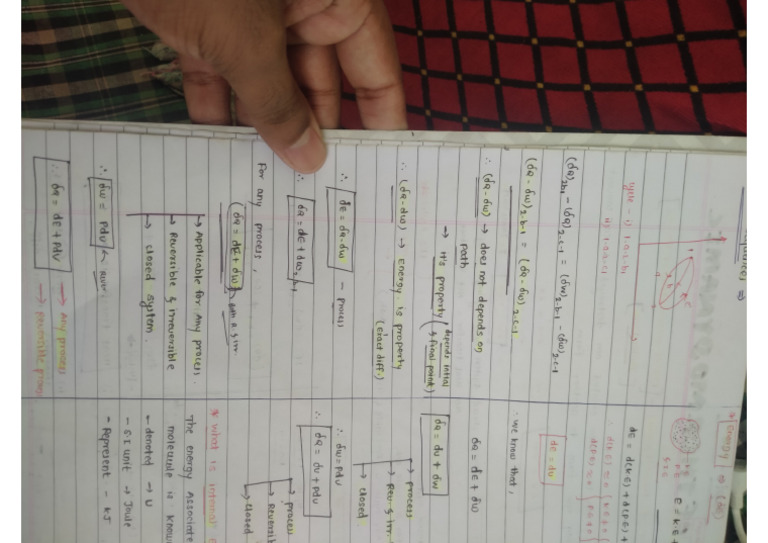 cycle → i) 1-a-2-b-1
ii) 1-a-2-c-1
(δQ)2-b-1 - (δQ)2-c-1 = (δW)2-b-1 - (δW)2-c-1
(δQ - δW)2-b-1 = (δQ - δW)2-c-1
∴ (δQ - δW) → does not depends on
path
→ It's property (depends initial
& final point)
∴ (δQ - δW) → Energy is property
(Exact diff.)
∴ dE = δQ - δW – process
∴ δQ = dE + δW
For any process,
(δQ = dE + δW)
→ Applicable for Any process.
→ Reversible & irreversible
→ closed system.
∴ δW = Pdv
∴ δQ = dE + Pdv → Any process
→ Reversible
* Energy ⇒ (dE)
E = K.E +
dE = d(K.E) + d(P.E) +
∴ d(K.E) = 0
d(P.E) = 0
dE = du
∴ we know that,
δQ = dE + δW
δQ = du + δW
→ process
→ Rev & irr.
→ closed.
∴ δW = Pdv
∴ δQ = du + Pdv
→ process
→ Reversi
→ closed
* What is internal
The energy Associate
molecule is know
– denoted → U
– S.I unit → Joule
– Represent – KJ